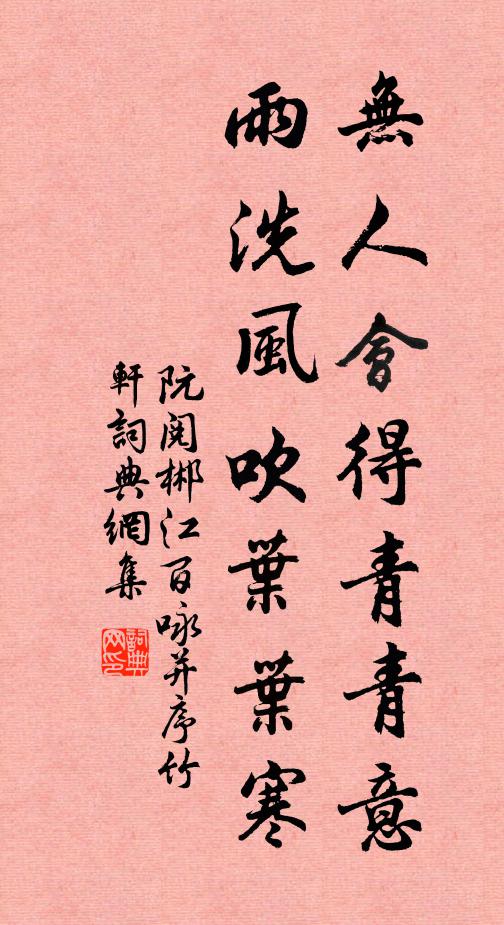 無人會得青青意
雨洗風吹葉葉寒
阮閱郴江百咏并序竹
軒詞典網集
詞典網印